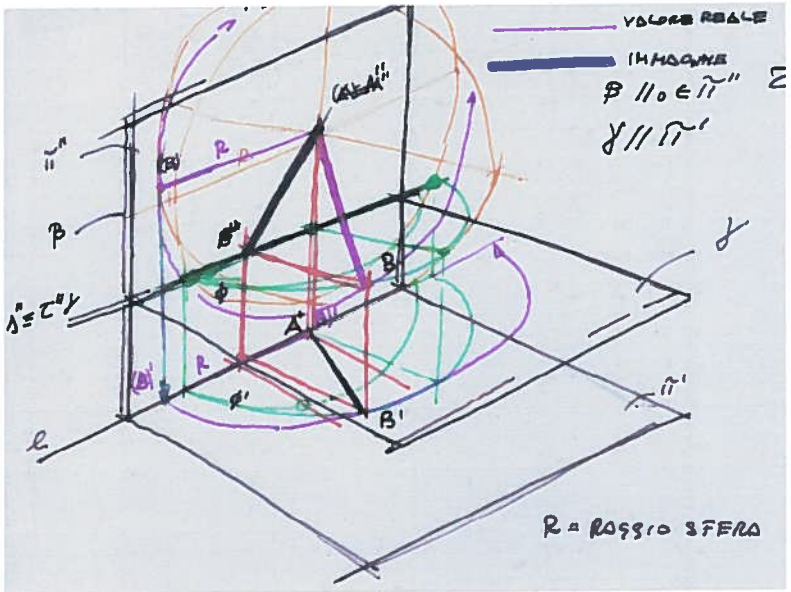 VALORE REALE
IMMAGINE
β //o ∈ π̃"
γ // π̃'
(A)≡A"
π̃"
(B)
R
R
β
B"
γ
B
ϕ
A'
s"≡τ"γ
(B)'
R
ϕ'
B'
π̃'
e
R = RAGGIO SFERA